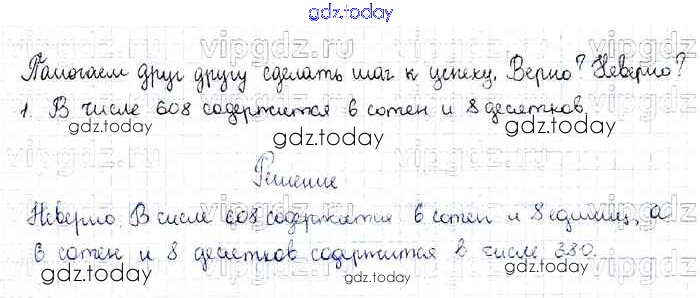 gdz.today
Помогаем друг другу сделать шаг к успеху. Верно? Неверно?
1. В числе 608 содержится 6 сотен и 8 десятков.
gdz.today gdz.today
Решение
gdz.today
Неверно. В числе 608 содержится 6 сотен и 8 единиц, а
6 сотен и 8 десятков содержится в числе 380.
gdz.today gdz.today